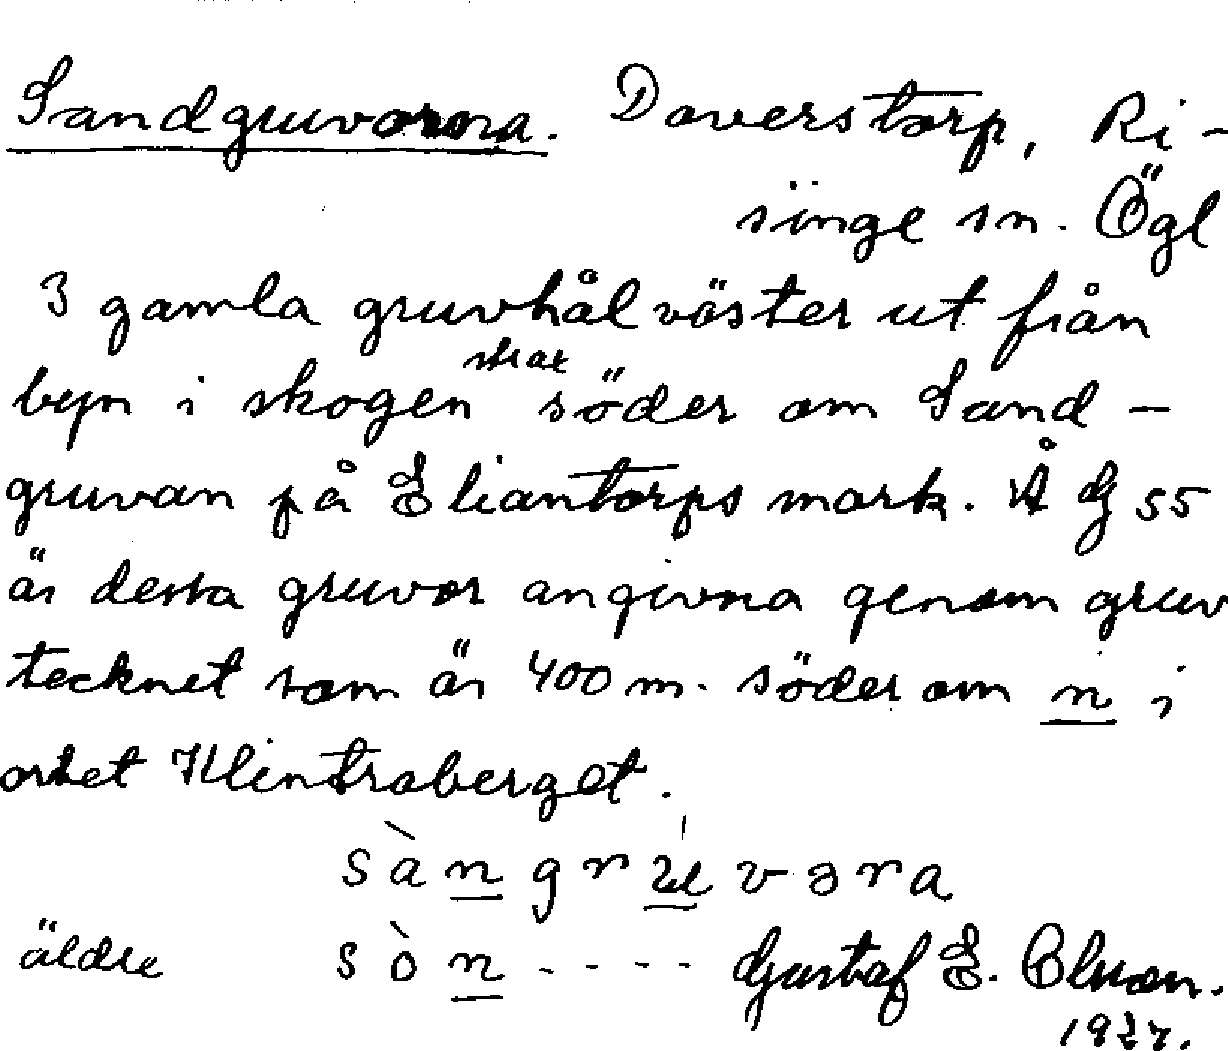 Sandgruvorna. Daverstorp, Ri-
singe sn. Ögl
3 gamla gruvhål väster ut från
byn i skogen strax söder om Sand-
gruvan på Eliantorps mark. Å G 55
är dessa gruvor angivna genom gruv
tecknet som är 400 m. söder om n i
ordet Klintraberget.
sàngrúvəra
äldre sòn - - - - Gustaf E. Olsson.